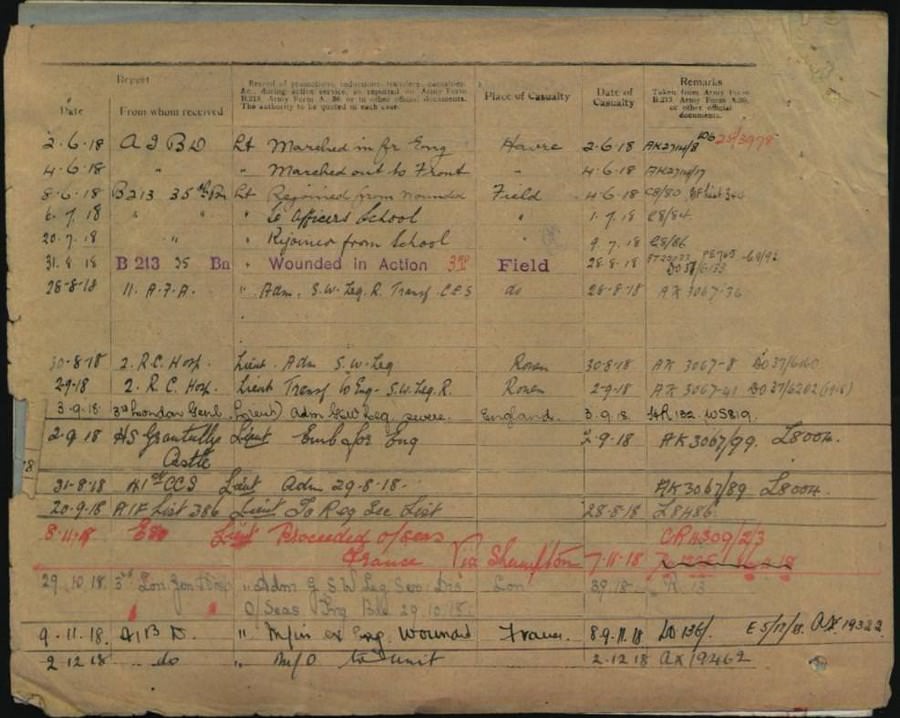 Report
Record of promotions, reductions, transfers, casualties,
&c., during active service, as reported on Army Form
B.213, Army Form A. 36, or in other official documents.
The authority to be quoted in each case.
Remarks
Taken from Army Form
B.213, Army Form A.36,
or other official
documents.
Date From whom received Place of Casualty Date of Casualty
2.6.18 A I B D Lt Marched in fr Eng Havre 2-6-18 28/3978
4.6.18 " " Marched out to Front " 4.6.18
8.6.18 B213 35 Bn Lt Rejoined from wounded Field 4.6.18 C8/80
6.7.18 " " " To Officers School " 1.7.18 C8/84
20.7.18 " " Rejoined from School " 9.7.18 C8/86
31.8.18 B 213 35 Bn " Wounded in Action Field 28.8.18
28-8-18 11. A.F.A. " Adm. S.W. Leg. R. Transf. C.C.S do 28-8-18 AK 3067-36
30-8-18 2. R.C. Hosp. Lieut. Adm S.W. Leg Rouen 30.8.18 AK 3067-8
2-9-18 2. R.C. Hosp. Lieut Transf to Eng- S.W. Leg. R. Rouen 2-9-18 AK 3067-41
3.9.18 3rd London Genl. Adm G.S.W. Leg. severe. England. 3.9.18. HR 132. W5819.
2.9.18 HS Grantully Lieut Emb for Eng 2-9-18 AK 3067/99. L8004.
Castle
31-8-18 CCS Lieut Adm 29-8-18. AK 3067/89 L8004.
20-9-18 AIF List 386 Lieut To Reg Sec List 28-8-18 L8486
8.11.18 Lieut Proceeded o/seas
France Via Shampton 7-11-18
29.10.18. 3rd Lon Gen Hosp " Adm G S W Leg Sev Dis Lon
O/Seas Trg Bde 29.10.18.
9.11.18. A I B D. " M/in ex Eng. Wounded France. 8.9.11.18 AX 19322
2.12.18 do " M/O to unit 2.12.18 AX 19462